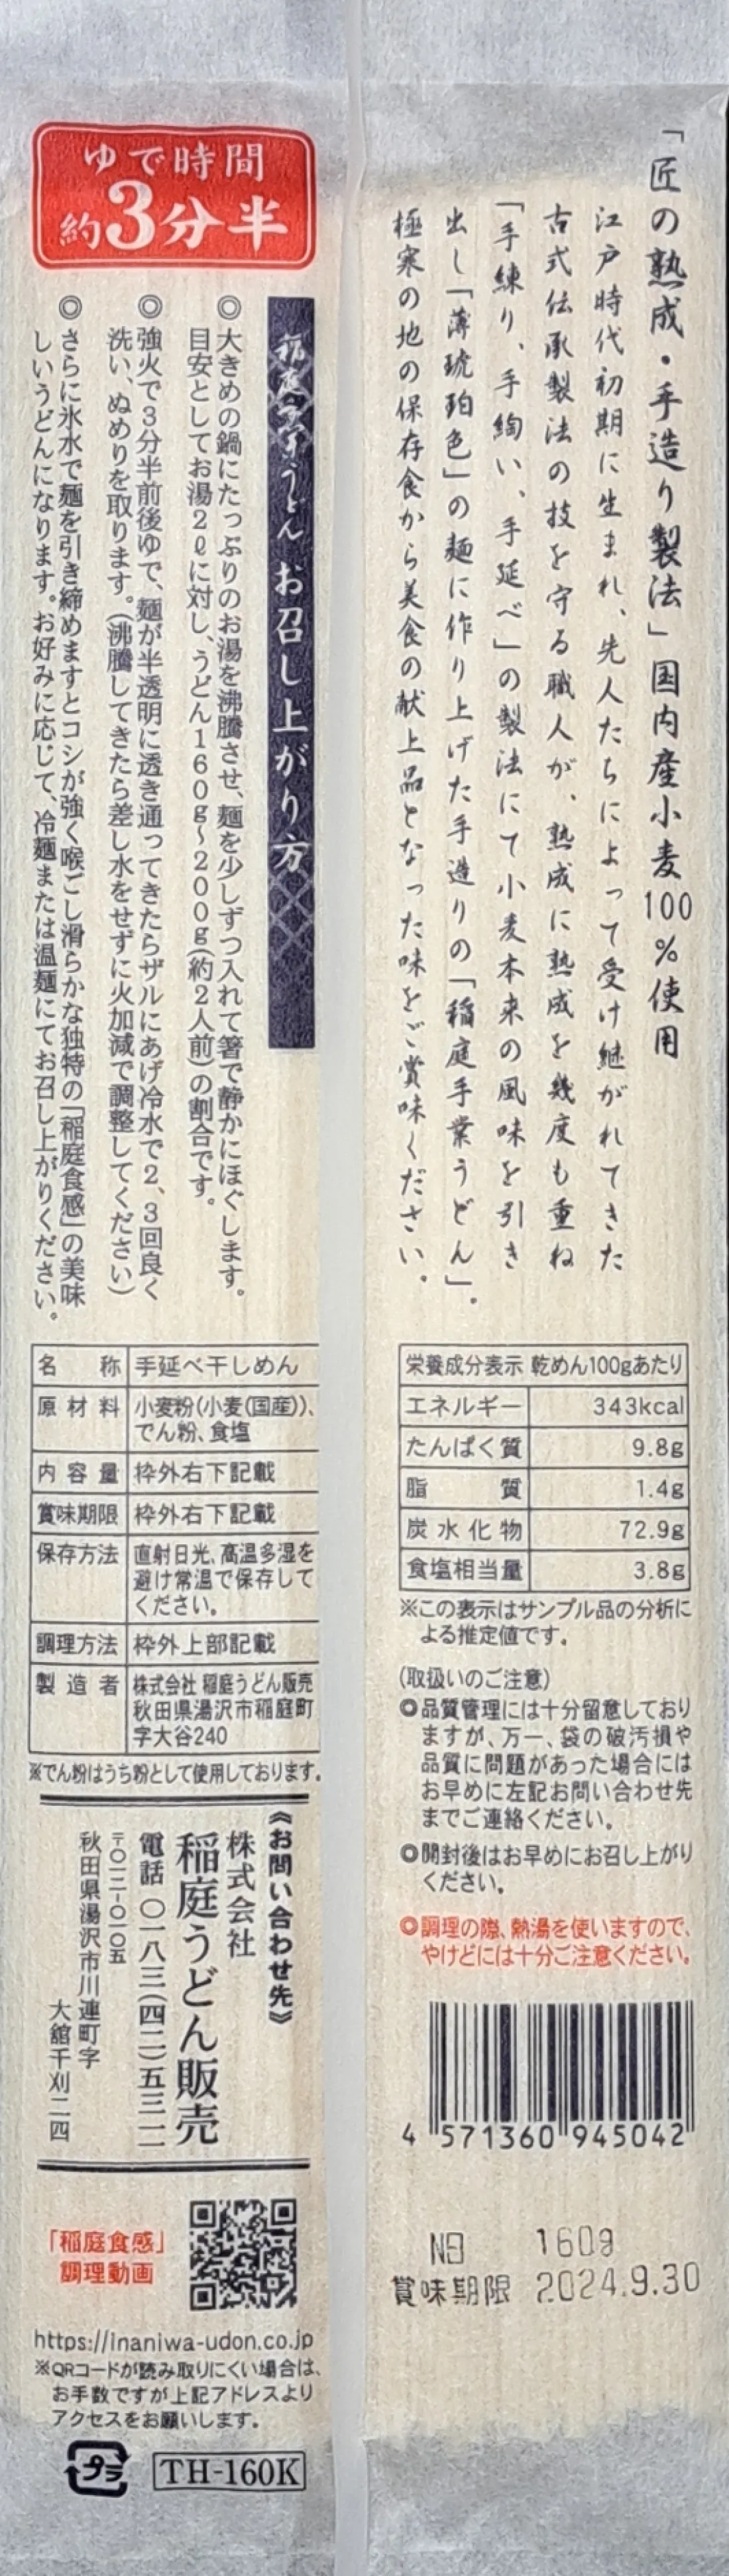 ゆで時間
約3分半
稲庭手業うどん お召し上がり方
◎大きめの鍋にたっぷりのお湯を沸騰させ、麺を少しずつ入れて箸で静かにほぐします。
目安としてお湯2ℓに対し、うどん160g〜200g(約2人前)の割合です。
◎強火で3分半前後ゆで、麺が半透明に透き通ってきたらザルにあげ冷水で2、3回良く
洗い、ぬめりを取ります。(沸騰してきたら差し水をせずに火加減で調整してください)
◎さらに氷水で麺を引き締めますとコシが強く喉ごし滑らかな独特の「稲庭食感」の美味
しいうどんになります。お好みに応じて、冷麺または温麺にてお召し上がりください。
名 称 手延べ干しめん
原材料 小麦粉(小麦(国産))、
でん粉、食塩
内容量 枠外右下記載
賞味期限 枠外右下記載
保存方法 直射日光、高温多湿を
避け常温で保存して
ください。
調理方法 枠外上部記載
製造者 株式会社 稲庭うどん販売
秋田県湯沢市稲庭町
字大谷240
※でん粉はうち粉として使用しております。
《お問い合わせ先》
株式会社
稲庭うどん販売
電話 〇一八三(四二)五三一一
〒〇一二-〇一〇五
秋田県湯沢市川連町字
大舘千刈二四
「稲庭食感」
調理動画
https://inaniwa-udon.co.jp
※QRコードが読み取りにくい場合は、
お手数ですが上記アドレスより
アクセスをお願いします。
プラ
TH-160K
「匠の熟成・手造り製法」国内産小麦100%使用
江戸時代初期に生まれ、先人たちによって受け継がれてきた
古式伝承製法の技を守る職人が、熟成に熟成を幾度も重ね
「手練り、手綯い、手延べ」の製法にて小麦本来の風味を引き
出し「薄琥珀色」の麺に作り上げた手造りの「稲庭手業うどん」。
極寒の地の保存食から美食の献上品となった味をご賞味ください。
栄養成分表示 乾めん100gあたり
エネルギー 343kcal
たんぱく質 9.8g
脂 質 1.4g
炭水化物 72.9g
食塩相当量 3.8g
※この表示はサンプル品の分析に
よる推定値です。
(取扱いのご注意)
◎品質管理には十分留意しており
ますが、万一、袋の破汚損や
品質に問題があった場合には
お早めに左記お問い合わせ先
までご連絡ください。
◎開封後はお早めにお召し上がり
ください。
◎調理の際、熱湯を使いますので、
やけどには十分ご注意ください。
4 571360 945042
160g
賞味期限 2024.9.30